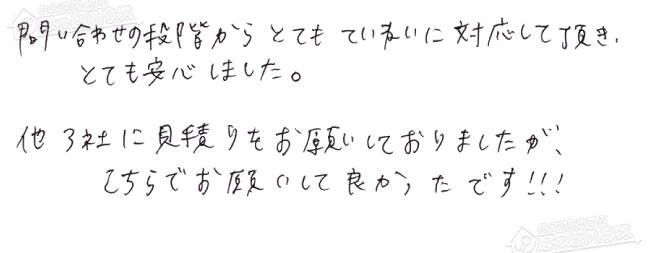 問い合わせの段階からとてもていねいに対応して頂き、
とても安心しました。
他3社に見積りをお願いしておりましたが、
こちらでお願いして良かったです!!!